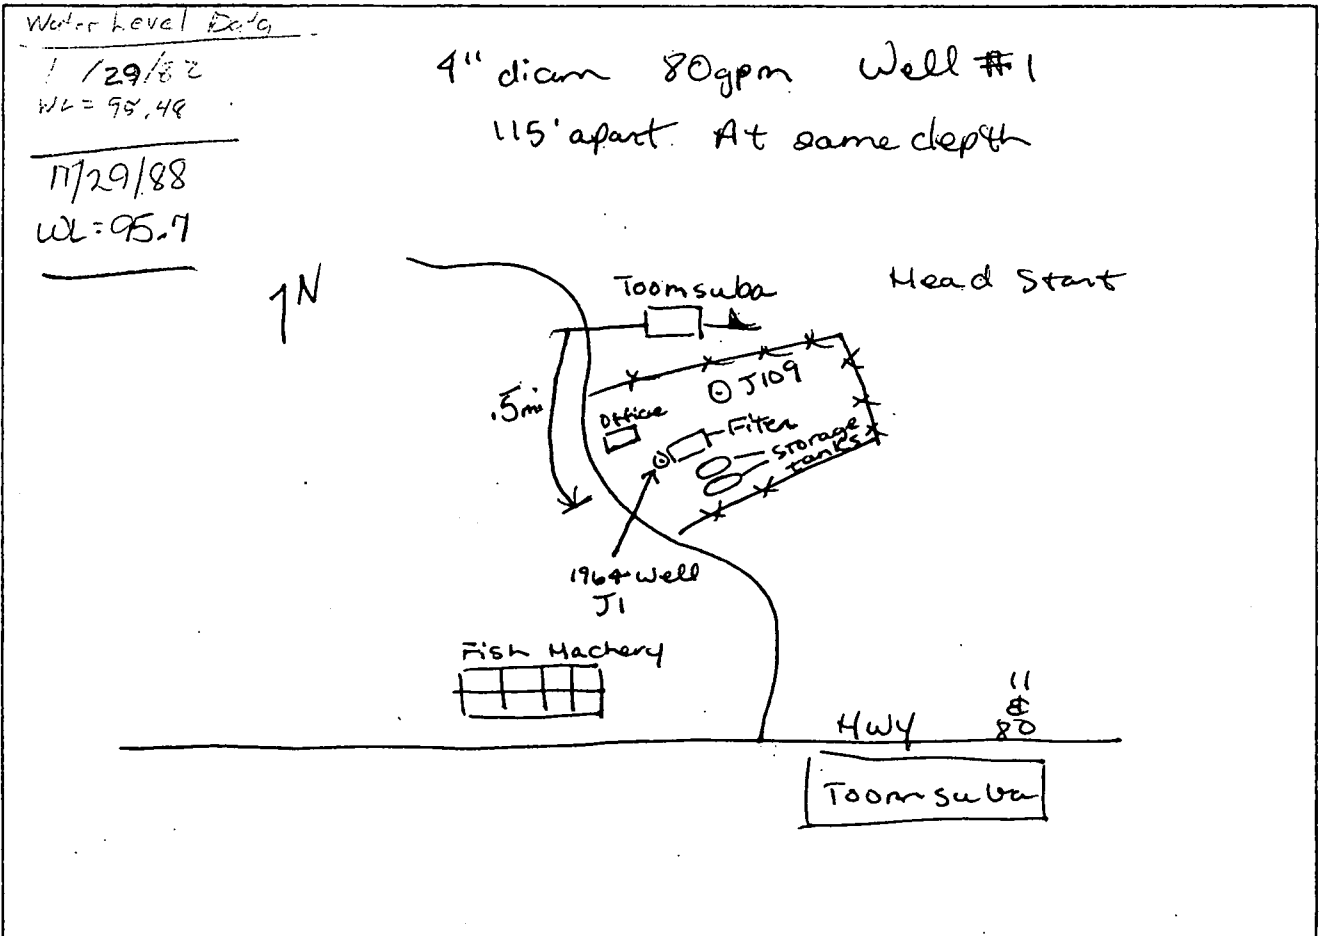 Water Level Data
1 /29/82
WL = 95.48
11/29/88
WL = 95.7
4" diam 80gpm Well #1
115' apart. At same depth
N
Toomsuba Head Start
.5mi
J109
Office
Fiter
Storage
tanks
1964 Well
J1
Fish Hachery
11
&
80
Hwy
Toomsuba